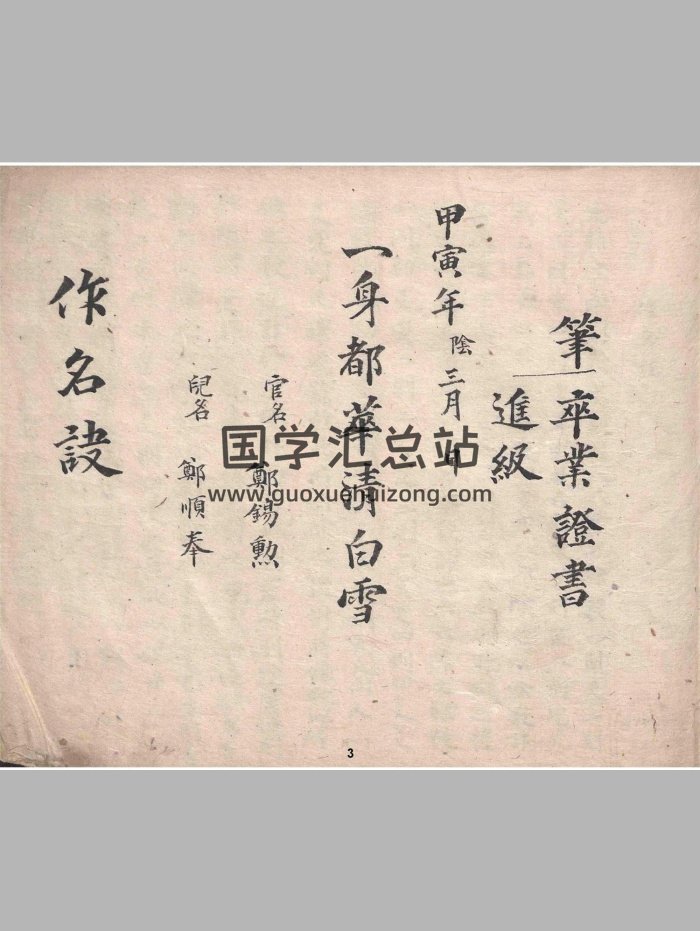 筆卒業證書
進級
甲寅年陰三月日
一身都華清白雪
官名 鄭錫勲
兒名 鄭順奉
作名訣
国学汇总站
www.guoxuehuizong.com
3